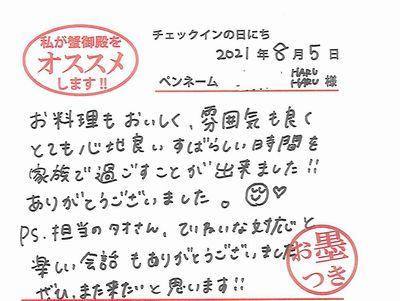 私が蟹御殿を
オススメ
します!!
チェックインの日にち
2021年8月5日
ペンネーム HARU HARU 様
お料理もおいしく、雰囲気も良く
とても心地良いすばらしい時間を
家族で過ごすことが出来ました!!
ありがとうございました。
PS.担当のタオさん、ていねいな対応と
楽しい会話もありがとうございました
ぜひ、また来たいと思います!!
お墨つき